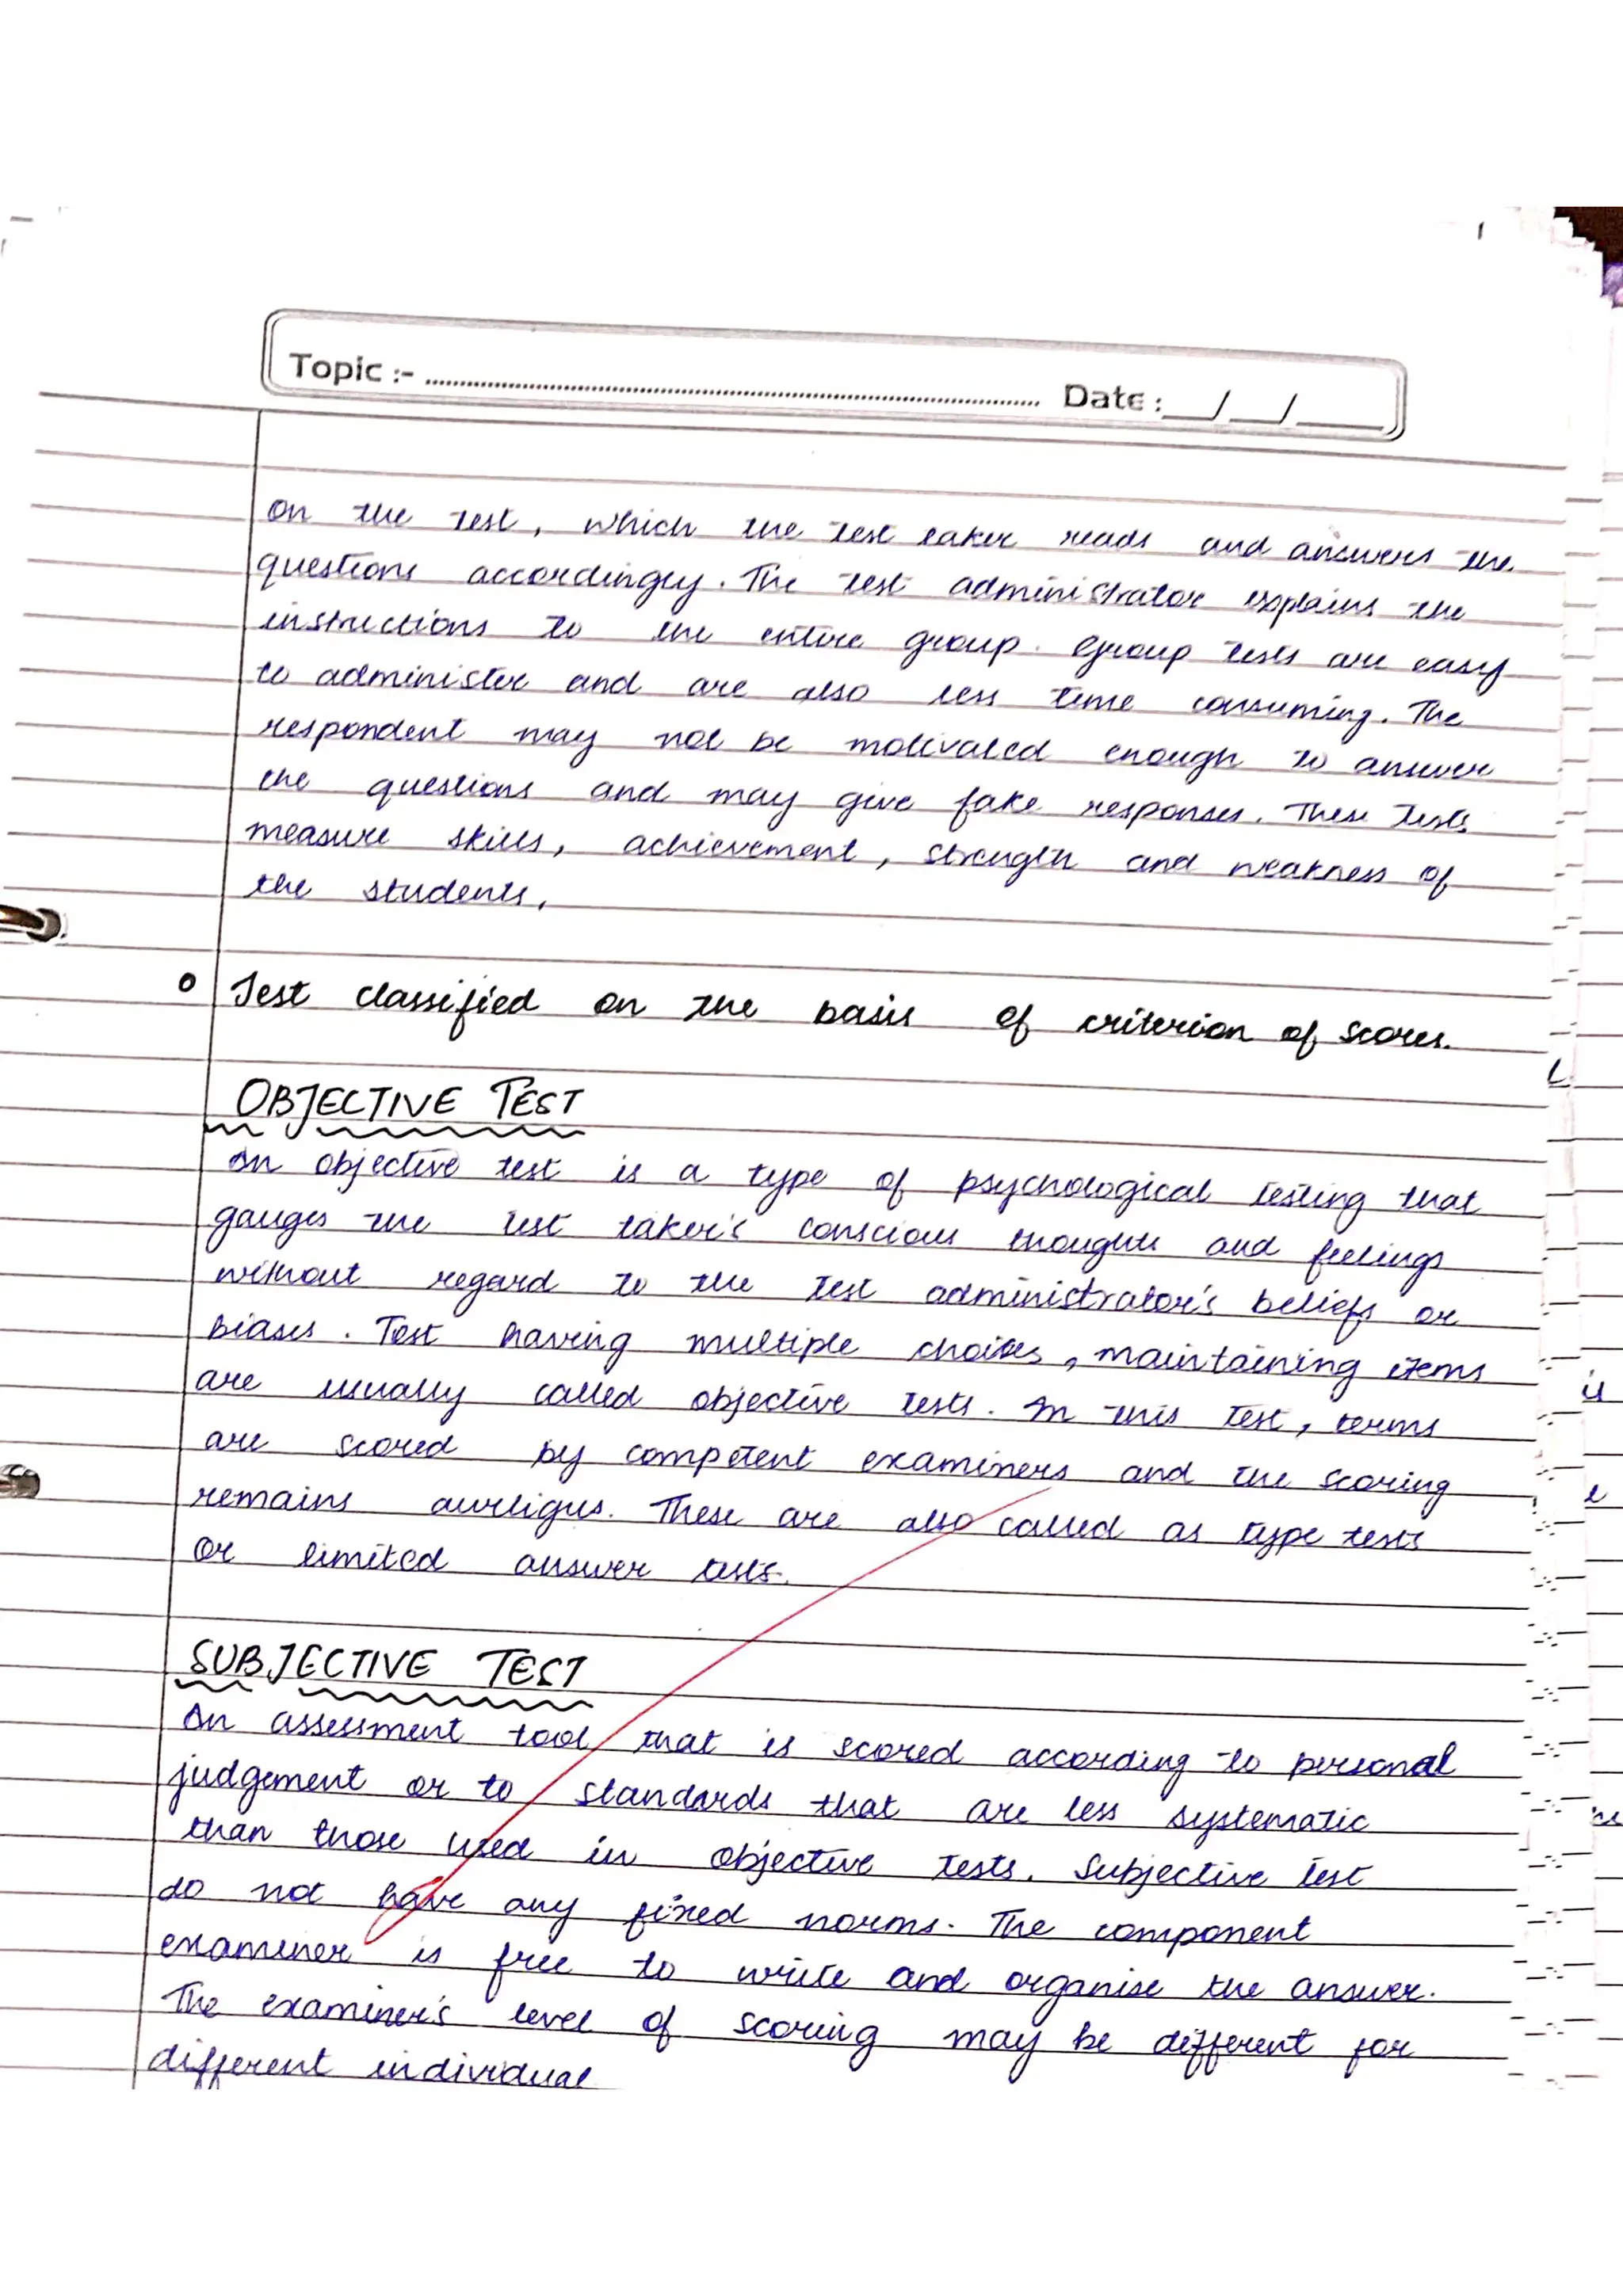 Topic :- Date : / /
on the test, which the test taker reads and answers the
questions accordingly. The test administrator explains the
instructions to the entire group. Group tests are easy
to administer and are also less time consuming. The
respondent may not be motivated enough to answer
the questions and may give fake responses. These tests
measure skills, achievement, strength and weakness of
the students.
Test classified on the basis of criterion of scores.
OBJECTIVE TEST
An objective test is a type of psychological testing that
gauges the test taker's conscious thoughts and feelings
without regard to the test administrator's beliefs or
biases. Test having multiple choices, maintaining items
are usually called objective tests. In this test, terms
are scored by competent examiners and the scoring
remains These are also called as type tests
or limited answer tests.
SUBJECTIVE TEST
An assessment tool that is scored according to personal
judgement or to standards that are less systematic
than those used in objective tests. Subjective test
do not have any fixed norms. The component
examiner is free to write and organise the answer.
The examiner's level of scoring may be different for
different individual